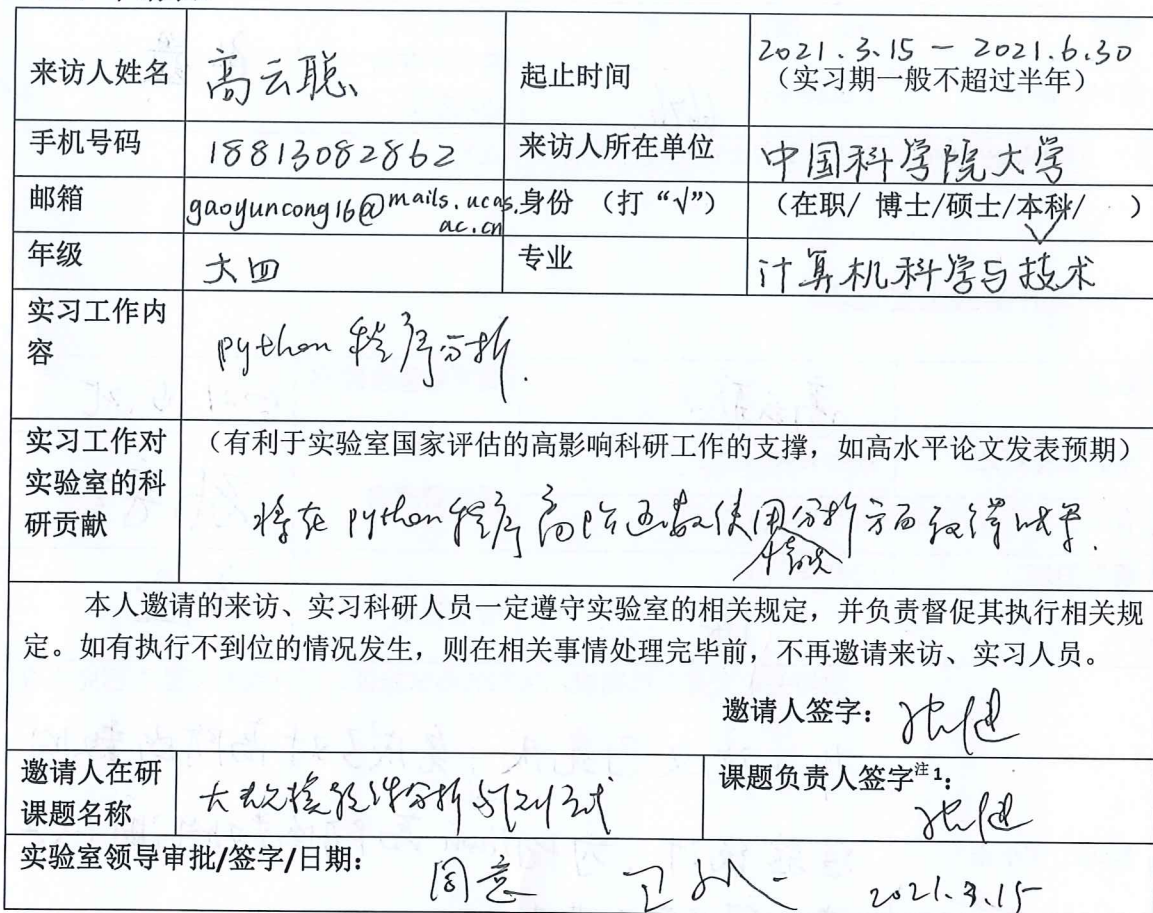 来访人姓名 高云聪 起止时间 2021.3.15 - 2021.6.30
(实习期一般不超过半年)
手机号码 18813082862 来访人所在单位 中国科学院大学
邮箱 gaoyuncong16@mails.ucas.ac.cn 身份 (打“√”) (在职/ 博士/硕士/本科/ )
√
年级 大四 专业 计算机科学与技术
实习工作内容 python 程序分析.
实习工作对实验室的科研贡献 (有利于实验室国家评估的高影响科研工作的支撑,如高水平论文发表预期)
将在 python 程序高阶函数使用情况分析方面取得成果.
本人邀请的来访、实习科研人员一定遵守实验室的相关规定,并负责督促其执行相关规
定。如有执行不到位的情况发生,则在相关事情处理完毕前,不再邀请来访、实习人员。
邀请人签字: 张健
邀请人在研课题名称 大规模软件分析与测试 课题负责人签字注1:
张健
实验室领导审批/签字/日期: 同意 2021.3.15